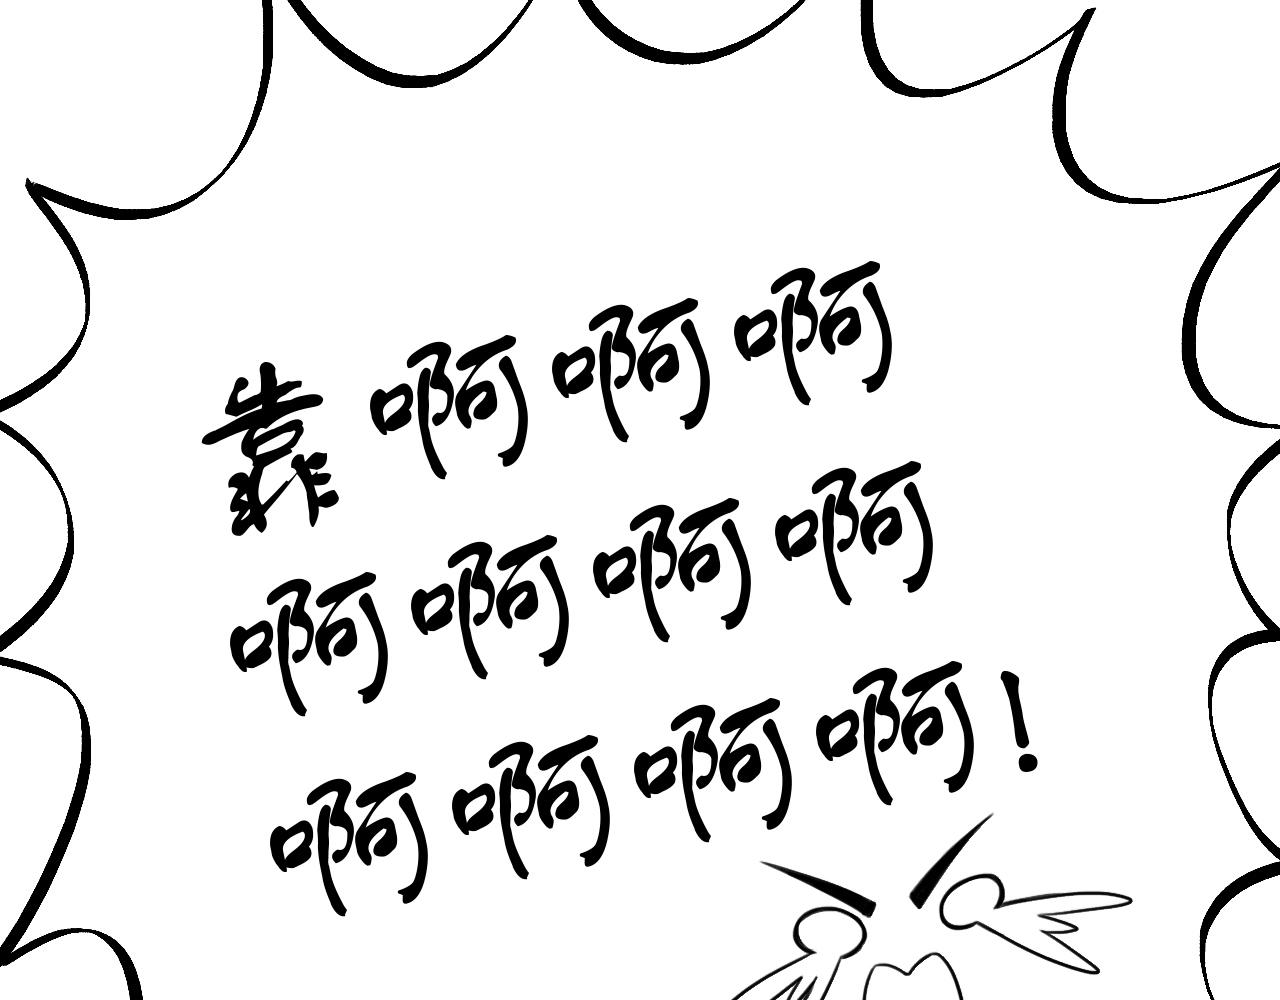 靠啊啊啊
啊啊啊啊
啊啊啊啊！